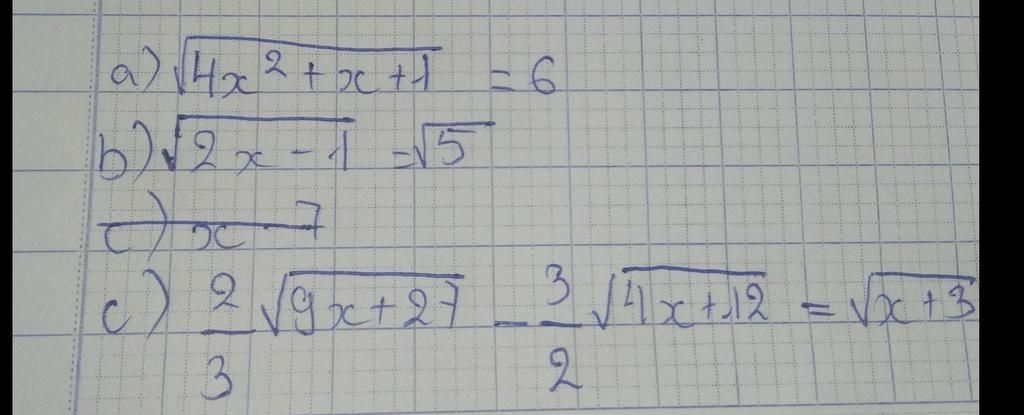 a) √(4x² + x + 1) = 6
b) √(2x - 1) = √5
c) x - 7
c) 2/3 √(9x + 27) - 3/2 √(4x + 12) = √(x + 3)